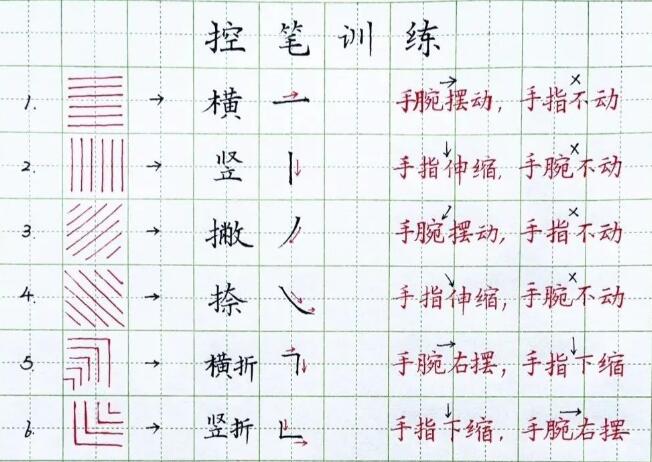 控笔训练
1. → 横 手腕摆动，手指不动
2. → 竖 手指伸缩，手腕不动
3. → 撇 手腕摆动，手指不动
4. → 捺 手指伸缩，手腕不动
5. → 横折 手腕右摆，手指下缩
6. → 竖折 手指下缩，手腕右摆